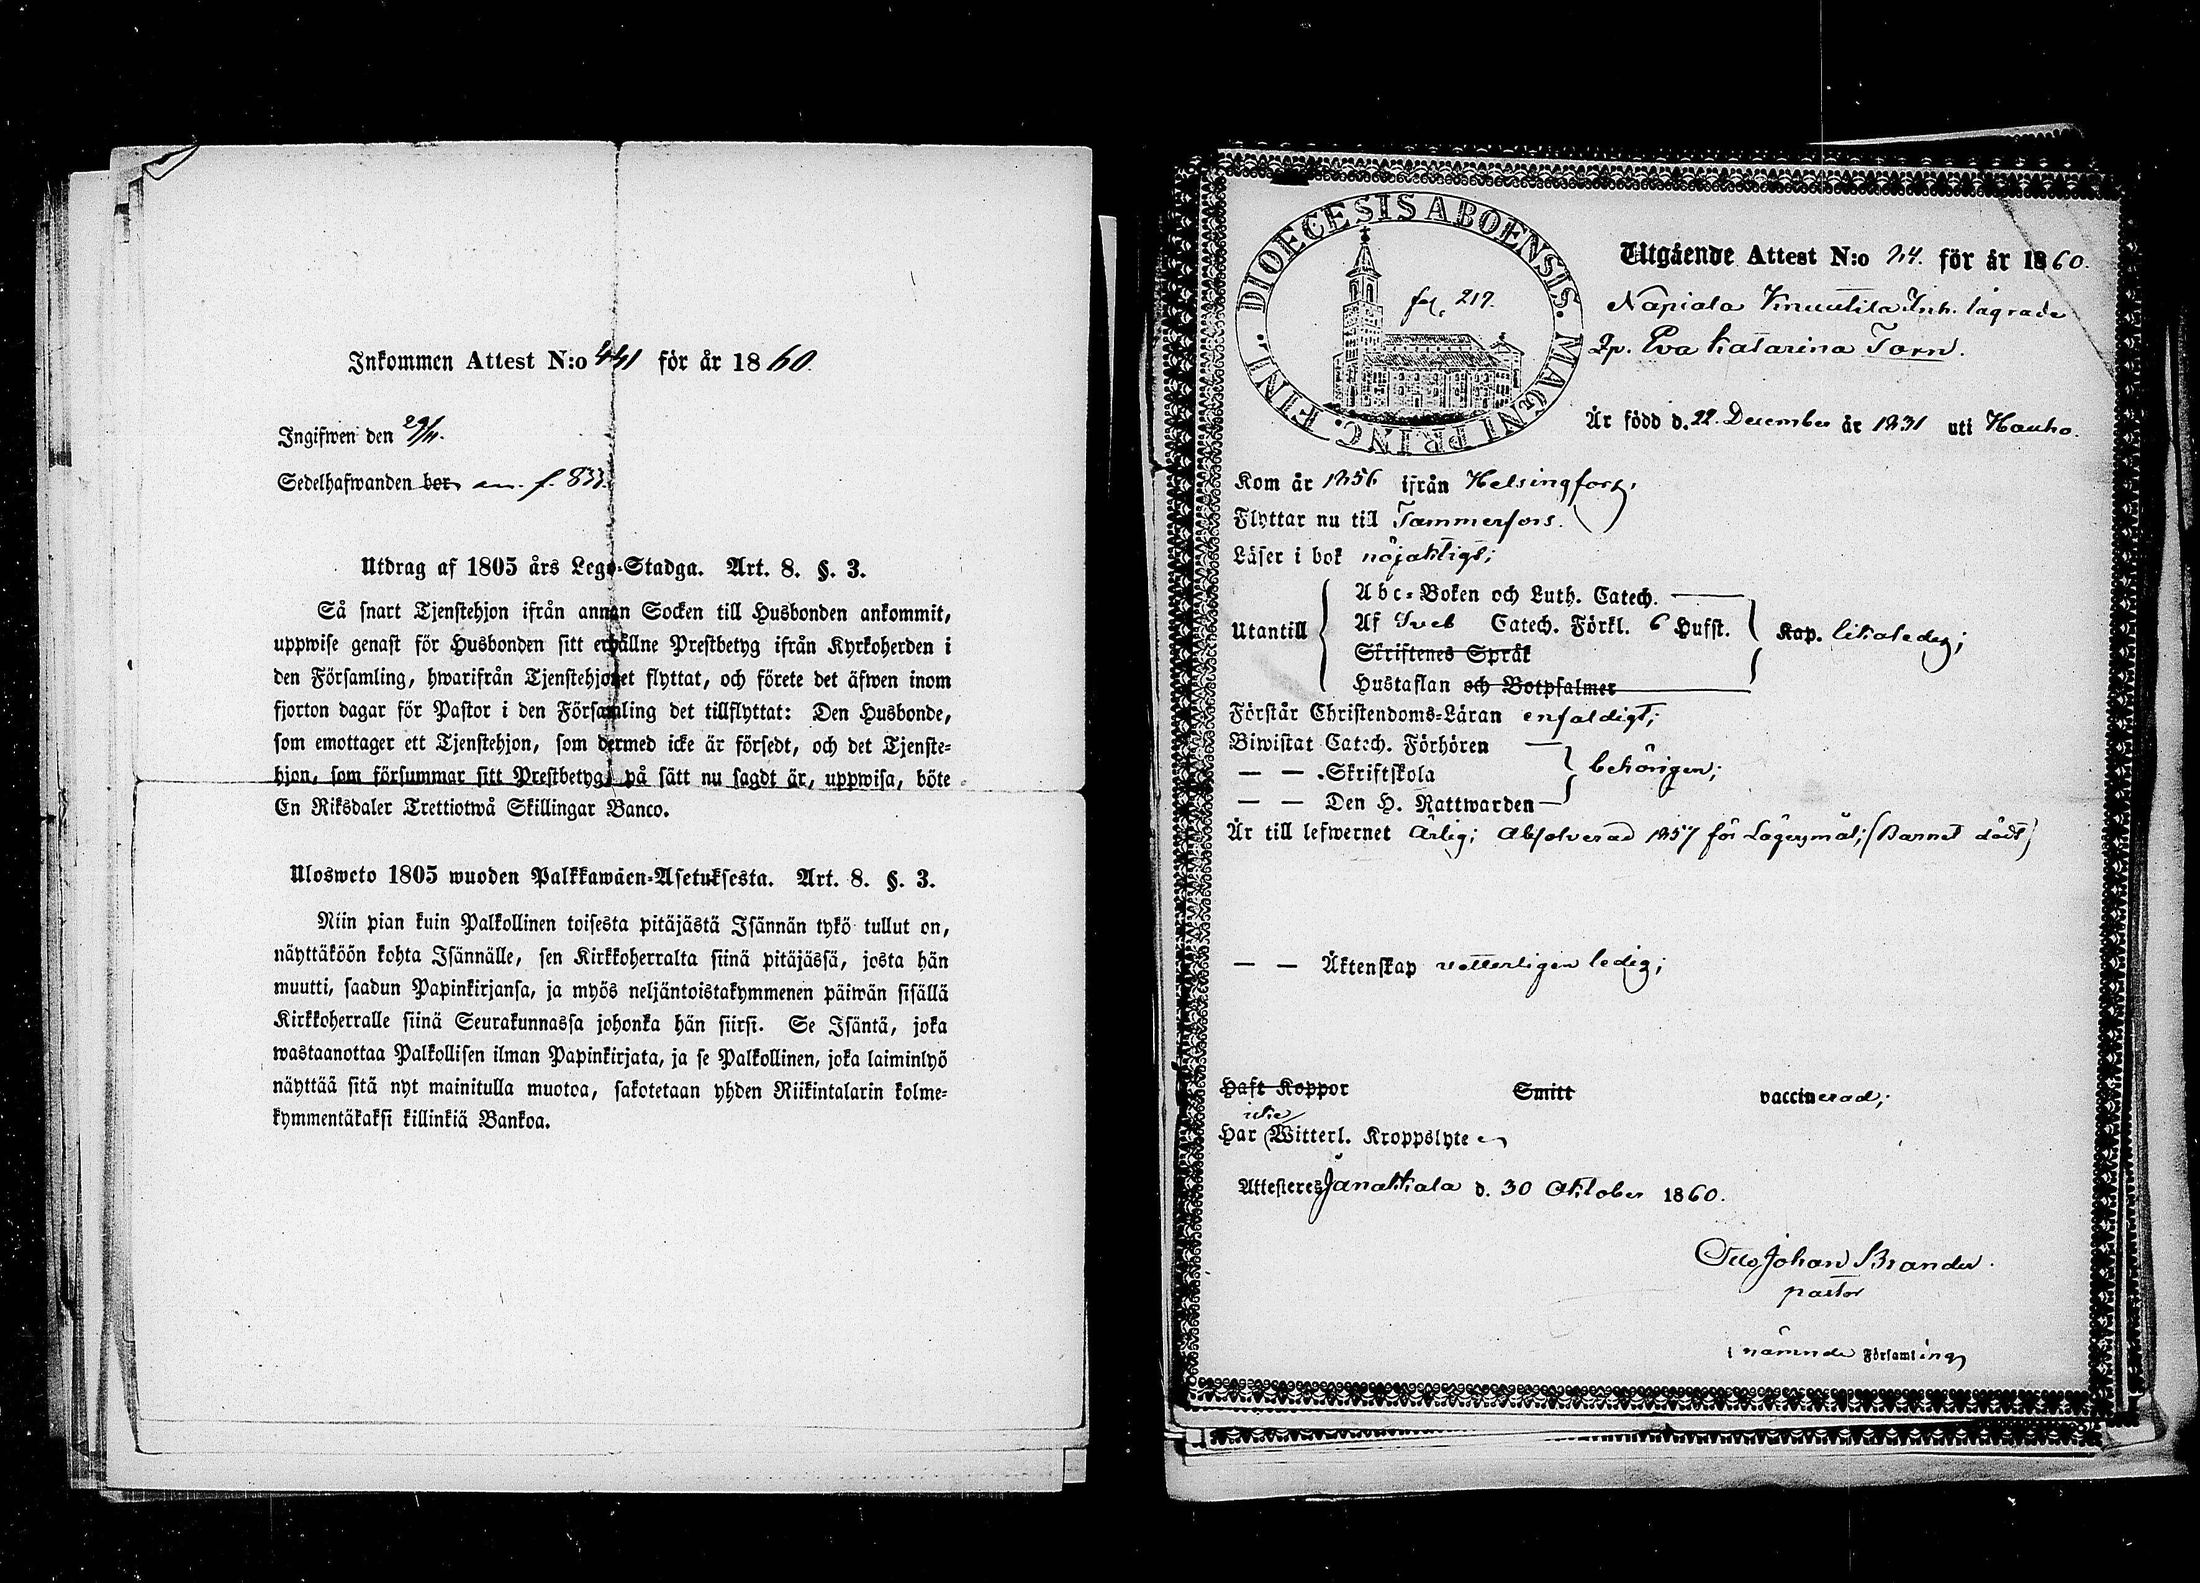 Inkommen Attest N:o 441 för år 1860.
Ingifwen den 29/11.
Sedelhafwanden bor an. f. 833.
Utdrag af 1805 års Lego-Stadga. Art. 8. §. 3.
Så snart Tjenstehjon ifrån annan Socken till Husbonden ankommit,
uppwise genast för Husbonden sitt erhållne Prestbetyg ifrån Kyrkoherden i
den Församling, hwarifrån Tjenstehjonet flyttat, och förete det äfwen inom
fjorton dagar för Pastor i den Församling det tillflyttat: Den Husbonde,
som emottager ett Tjenstehjon, som dermed icke är försedt, och det Tjenste-
hjon, som försummar sitt Prestbetyg, på sätt nu sagdt är, uppwisa, böte
En Riksdaler Trettiotwå Skillingar Banco.
Ulosweto 1805 wuoden Palkkawäen-Asetuksesta. Art. 8. §. 3.
Niin pian kuin Palkollinen toisesta pitäjästä Isännän tykö tullut on,
näyttäköön kohta Isännälle, sen Kirkkoherralta siinä pitäjässä, josta hän
muutti, saadun Papinkirjansa, ja myös neljäntoistakymmenen päiwän sisällä
Kirkkoherralle siinä Seurakunnassa johonka hän siirsi. Se Isäntä, joka
wastaanottaa Palkollisen ilman Papinkirjata, ja se Palkollinen, joka laiminlyö
näyttää sitä nyt mainitulla muotoa, sakotetaan yhden Riikintalarin kolme-
kymmentäkaksi killinkiä Bankoa.
DIOECESIS ABOENSIS. MAGNI PRINC. FINL.
fol. 217.
Utgående Attest N:o 24. för år 1860.
Napiala Knuutila Inh. lägrade
Qp. Eva Katarina Torn.
Är född d. 22. December år 1831 uti Hauho.
Kom år 1856 ifrån Helsingfors,
Flyttar nu till Tammerfors.
Läser i bok nöjaktigt;
Utantill
Abc-Boken och Luth. Catech.
Af Sveb Catech. Förkl. 6 Hufst.
Skriftenes Språk
Hustaflan och Botpsalmer
Kap. likaledes;
Förstår Christendoms-Läran enfaldigt;
Biwistat Catech. Förhören
— — Skriftskola behörigen;
— — Den H. Nattwarden
Är till lefwernet ärlig; absolverad 1857 för Lägersmål; (Barnet dödt)
— — Äktenskap vetterligen ledig;
Haft Koppor Smitt vaccinerad;
icke
Har Witterl. Kroppslyte
Attesteres Janakkala d. 30 Oktober 1860.
Otto Johan Brander.
pastor
i nämnde Församling